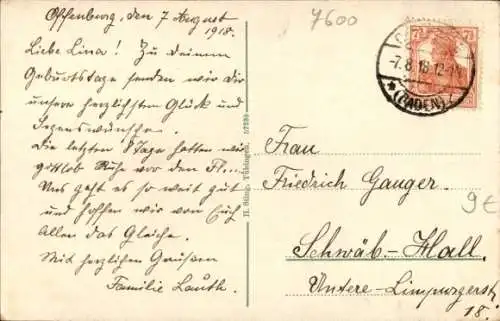 Offenburg, den 7 August
1918.
Liebe Lina! Zu Deinem
Geburtstage senden wir Dir
unsere herzlichsten Glück und
Segenswünsche.
Die letzten 8 Tage hatten wir
gottlob Ruhe vor den Fl...
Uns geht es so weit gut
und hoffen wir von Euch
Allen das Gleiche.
Mit herzlichen Grüßen
Familie Lauth.
H. Sting, Tübingen. 57239
7600
7½ 7½
-7.8.18.12-
*(BADEN)
Frau
Friedrich Gauger.
9€
Schwäb-Hall.
Untere-Limpurgerstr
18.